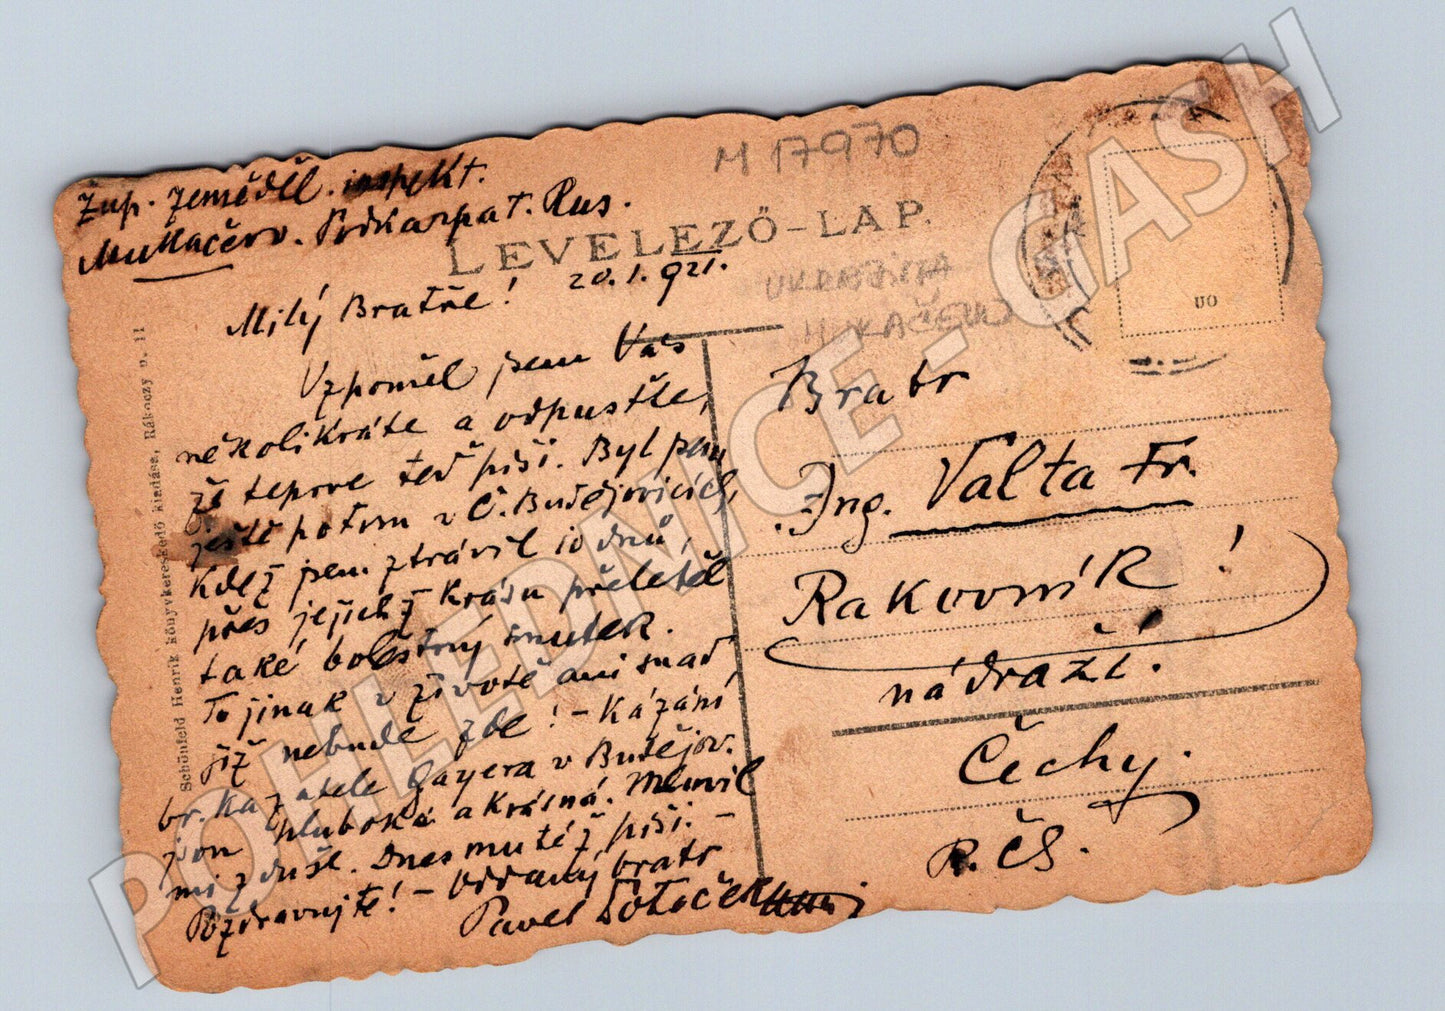 Žup. zeměděl. inspekt.
Mukačevo. Podkarpat. Rus.
M 17970
LEVELEZŐ-LAP.
20.1.921.
UKRAJINA
MUKAČEVO
UO
Milý Bratře!
Vzpomněl jsem Vás
několikráte a odpusťte,
že teprve teď píši. Byl jsem
ještě potom v Č. Budějovicích,
kdež jsem ztrávil 10 dnů,
přes jejichž krásu přeletěl
také bolestný smutek.
To jinak v životě ani snad
již nebude zde! – Kázání
br. kazatele Gayera v Budějov.
jsou hluboká a krásná. Mluvil
mi z duše. Dnes mu též píši. –
Pozdravujte! – Oddaný bratr
Pavel
Bratr
Ing. Valta Fr.
Rakovník!
nádraží.
Čechy.
R.ČS.
Schönfeld Henrik könyvkereskedő kiadása, Rákoczy u. 11
POHLEDNICE - GASH